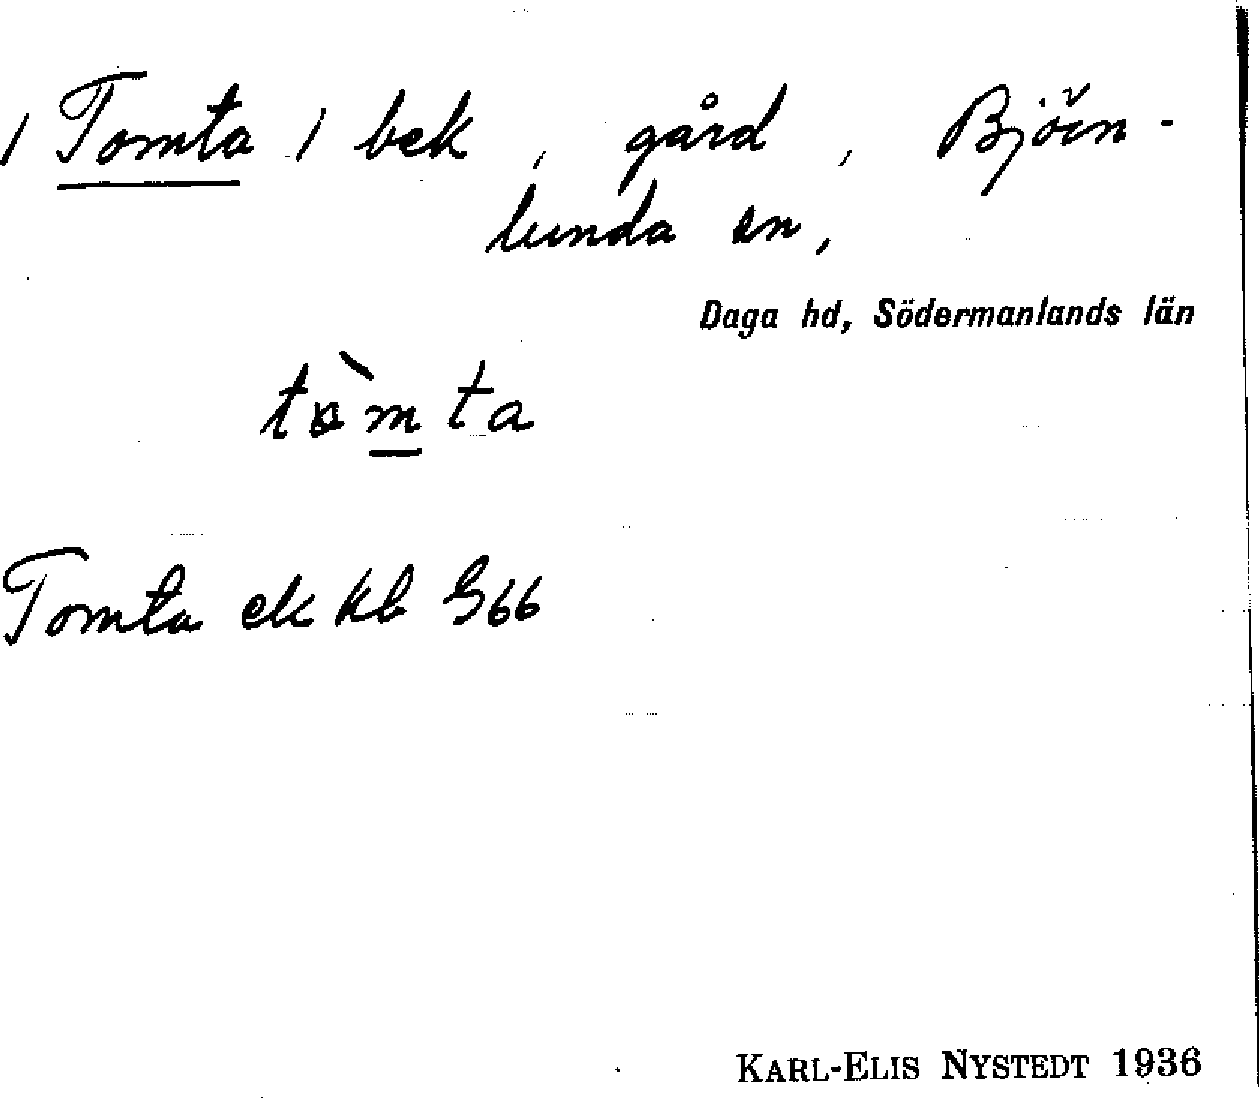 / Tomta / bek, gård, Björn-
lunda sn,
Daga hd, Södermanlands län
tòmta
Tomta ek kb G66
KARL-ELIS NYSTEDT 1936